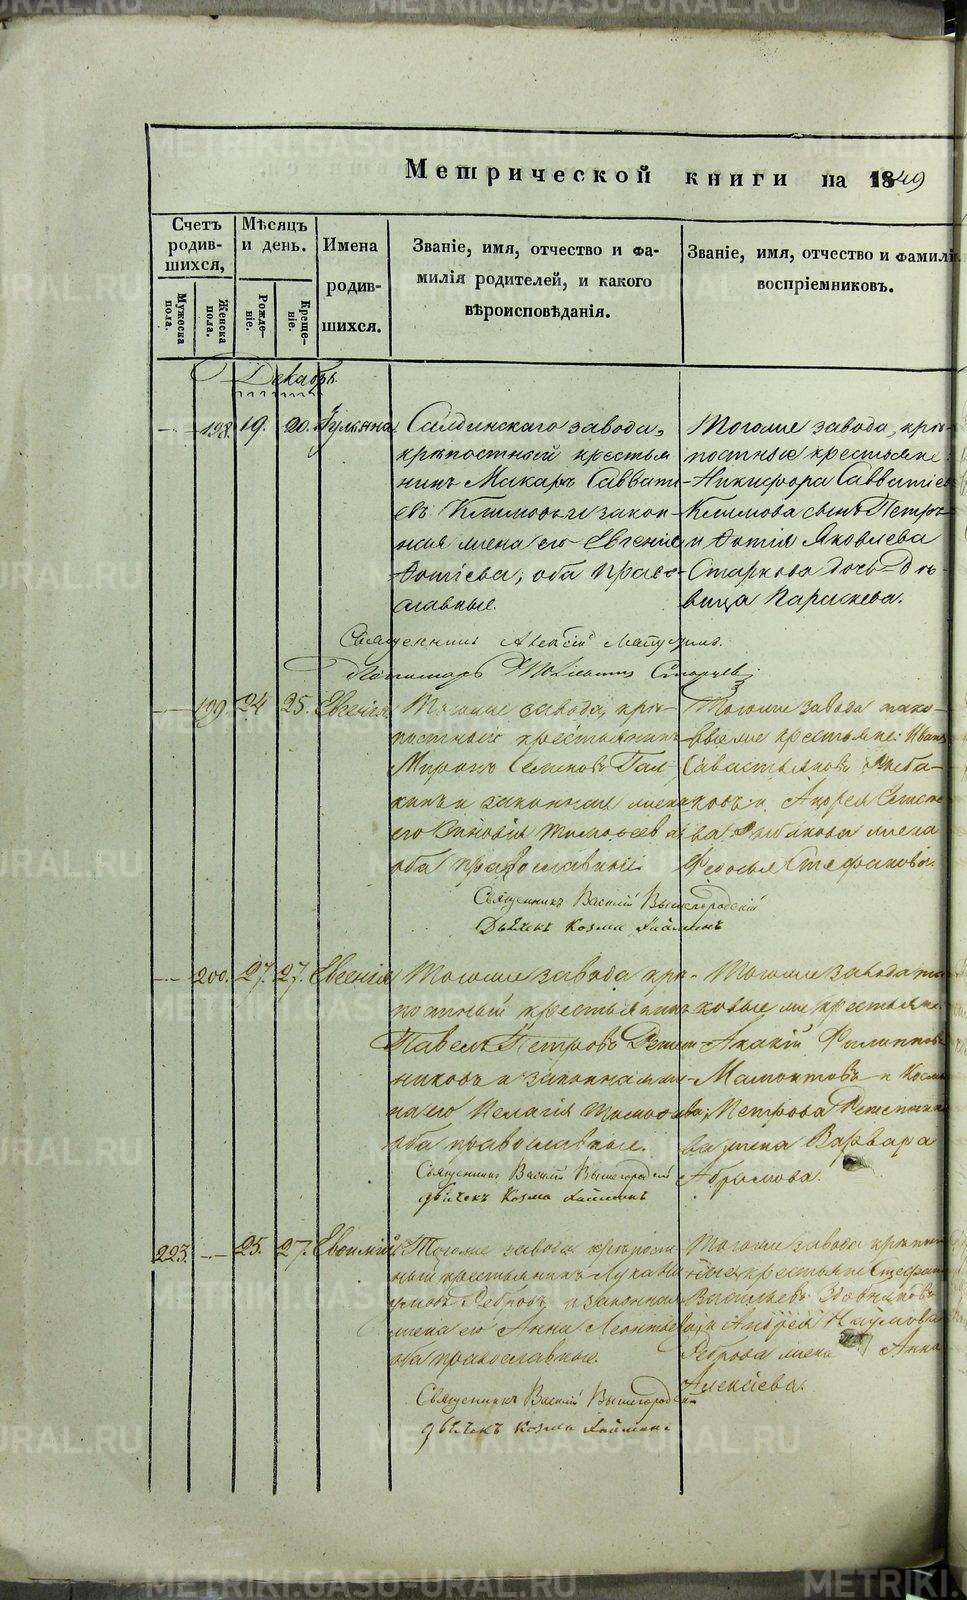 METRIKI.GASO-URAL.RU
Метрической книги на 1849
Счетъ родив-шихся,
Мужеска пола.
Женска пола.
Мѣсяцъ и день.
Рожде-ніе.
Креще-ніе.
Имена
родив-
шихся.
Званіе, имя, отчество и фа-
милія родителей, и какого
вѣроисповѣданія.
Званіе, имя, отчество и фамилі
воспріемниковъ.
Декабрь
198. 19. 20. Іульяна
Салдинскаго завода,
крѣпостный крестья
нинъ Макаръ Саввати
евъ Климовъ и закон-
ная жена его Евгенія
Фотіева; оба право-
славные.
Тогоже завода, крѣ-
постные крестьяне:
Никифора Савватіев
Климова сынъ Петръ
и Фотія Яковлева
Старкова дочь дѣ-
вица Параскева.
Священникъ Алексій
Пономарь
199 24 25. Евгенія
Тогоже завода, крѣ-
постный крестьянинъ
Миронъ Семеновъ Гал-
кинъ и законная жена
его Зиновія Тимофеева
оба православные.
Тогоже завода тако-
вые же крестьяне: Иванъ
Савастьяновъ Рыба-
ковъ и Андрея Семено
ва Рыбакова жена
Федосья Стефанова.
Священникъ Василій Вышегородскій
Дьячекъ Козма
200. 27. 27. Евгенія
Тогоже завода крѣ-
постный крестьянинъ
Павелъ Петровъ Решет
никовъ и законная же-
на его Пелагія Тимофеева,
оба православные.
Тогоже завода та
ковые же крестьяне:
Акакій Филиппов
Мамонтовъ и Козмы
Петрова Решетнико
ва жена Варвара
Абрамова.
Священникъ Василій Вышегородскій
дьячекъ Козма
223. 25. 27. Евфимій
Тогоже завода крѣпост
ный крестьянинъ Лука На
умовъ Ребровъ и законная
жена его Анна Леонтьева
оба православные.
Тогоже завода крѣпост
ные крестьяне Стефанъ
Васильевъ
и Андрея Наумова
Реброва жена Анна
Алексіева.
Священникъ Василій Вышегородскій
дьячекъ Козма